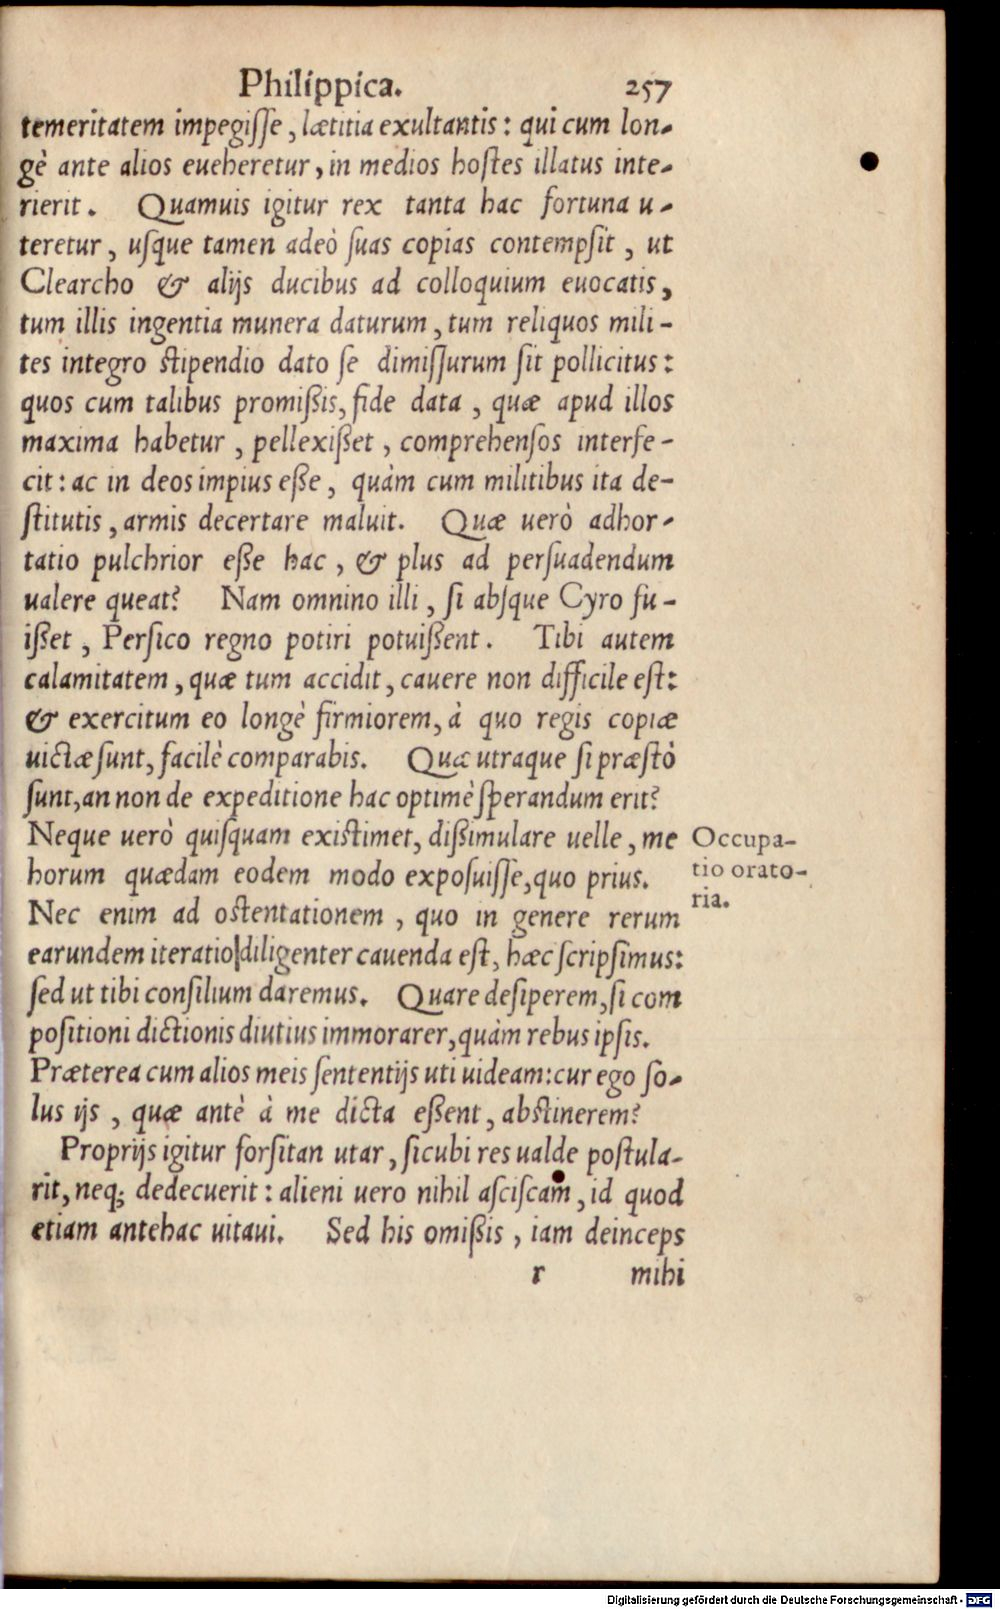 Philippica. 257
temeritatem impegiſſe, lætitia exultantis: qui cum lon-
gè ante alios eueheretur, in medios hoſtes illatus inte-
rierit. Quamuis igitur rex tanta hac fortuna u-
teretur, uſque tamen adeò ſuas copias contempſit, ut
Clearcho & alijs ducibus ad colloquium euocatis,
tum illis ingentia munera daturum, tum reliquos mili-
tes integro ſtipendio dato ſe dimiſſurum ſit pollicitus:
quos cum talibus promißis, fide data, quæ apud illos
maxima habetur, pellexißet, comprehenſos interfe-
cit: ac in deos impius eße, quàm cum militibus ita de-
ſtitutis, armis decertare maluit. Quæ uerò adhor-
tatio pulchrior eße hac, & plus ad perſuadendum
ualere queat? Nam omnino illi, ſi abſque Cyro fu-
ißet, Perſico regno potiri potuißent. Tibi autem
calamitatem, quæ tum accidit, cauere non difficile eſt:
& exercitum eo longè firmiorem, à quo regis copiæ
uictæ ſunt, facilè comparabis. Quæ utraque ſi præſtò
ſunt, an non de expeditione hac optimè ſperandum erit?
Neque uerò quiſquam exiſtimet, dißimulare uelle, me
horum quædam eodem modo expoſuiſſe, quo prius.
Nec enim ad oſtentationem, quo in genere rerum
earundem iteratio diligenter cauenda eſt, hæc ſcripſimus:
ſed ut tibi conſilium daremus. Quare deſiperem, ſi com
poſitioni dictionis diutius immorarer, quàm rebus ipſis.
Præterea cum alios meis ſententijs uti uideam: cur ego ſo-
lus ijs, quæ antè à me dicta eßent, abſtinerem?
Proprijs igitur forſitan utar, ſicubi res ualde poſtula-
rit, neq; dedecuerit: alieni uero nihil aſciſcam, id quod
etiam antehac uitaui. Sed his omißis, iam deinceps
r mihi
Occupa-
tio orato-
ria.
Digitalisierung gefördert durch die Deutsche Forschungsgemeinschaft - DFG